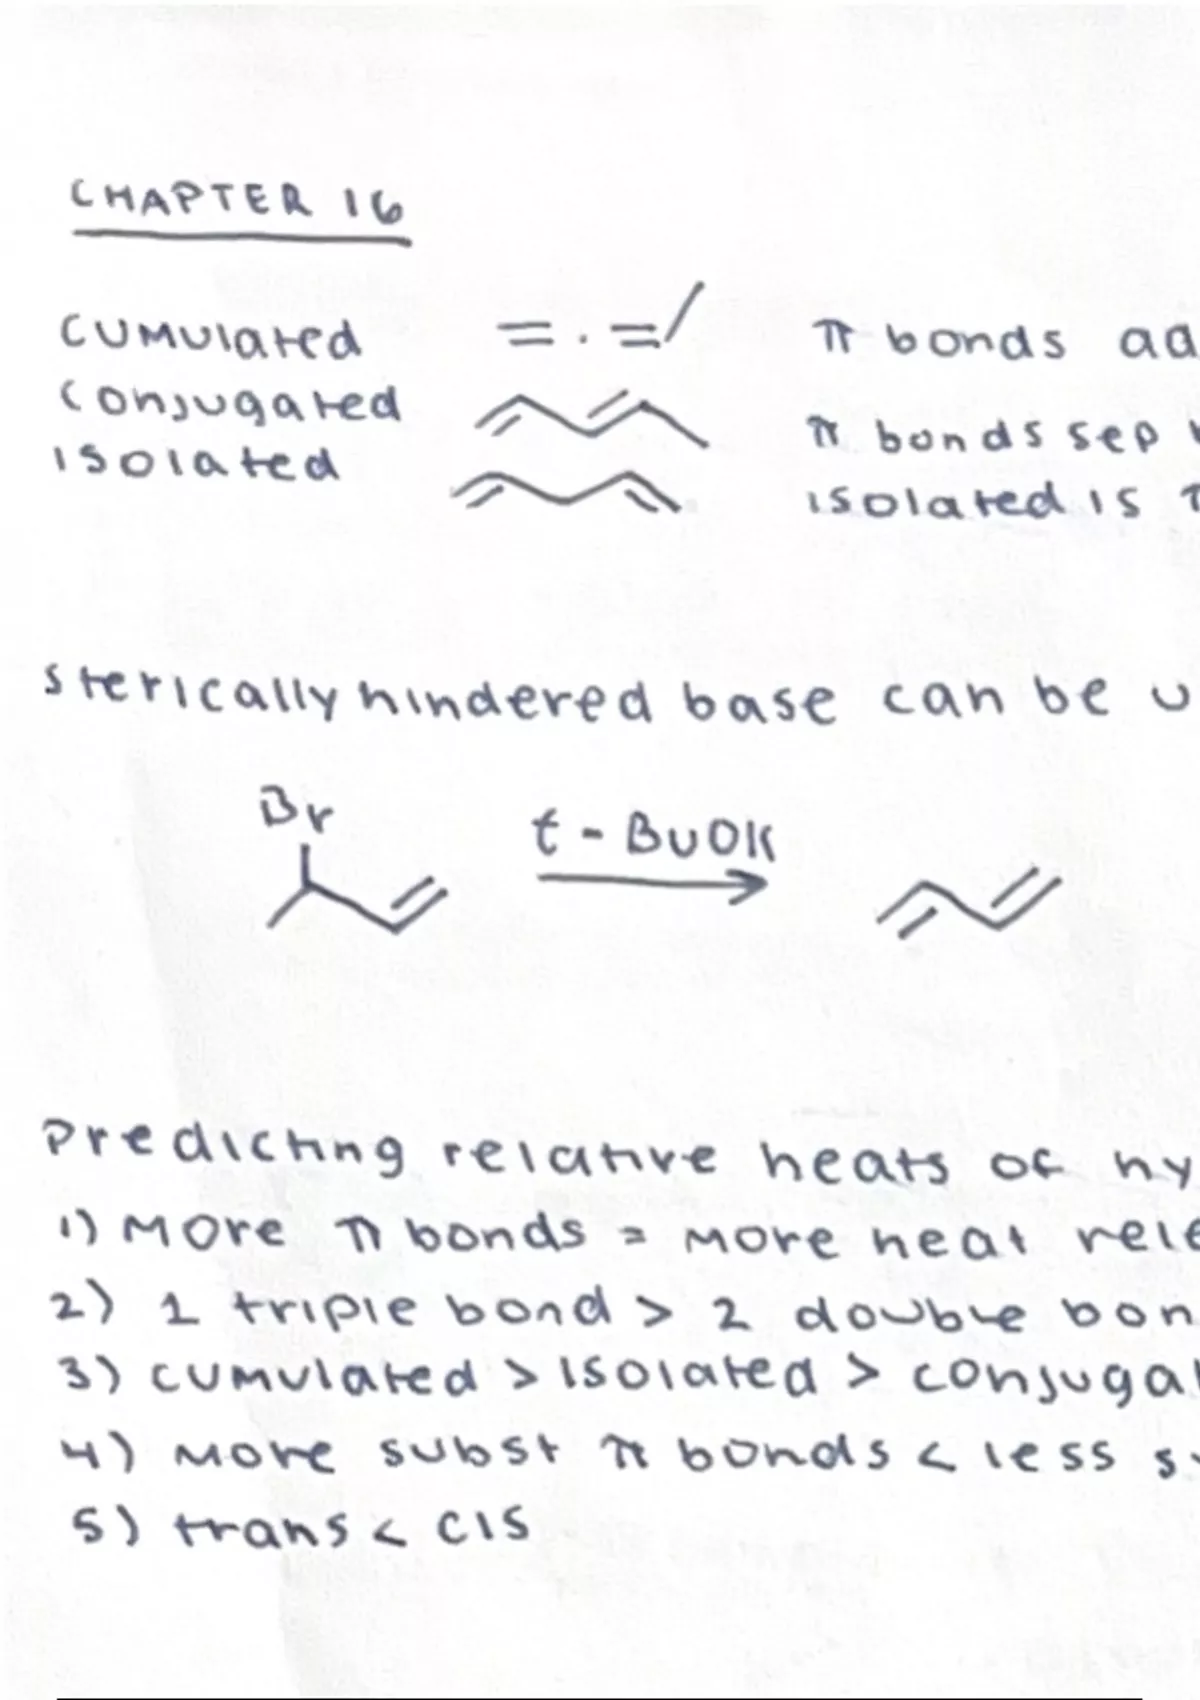 CHAPTER 16
cumulated = . =/ π bonds ad
conjugated π bonds sep
isolated isolated is
sterically hindered base can be u
Br
t-BuOK
Predicting relative heats of hy
1) More π bonds = more heat rele
2) 1 triple bond > 2 double bon
3) cumulated > isolated > conjugat
4) more subst π bonds < less s
5) trans < cis